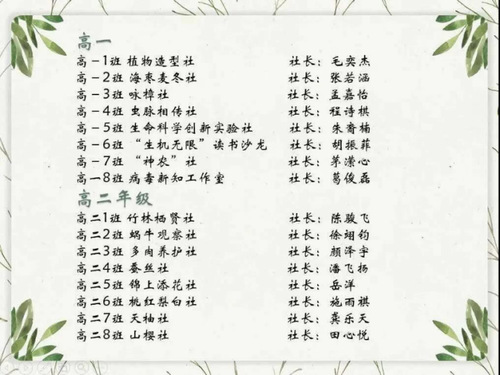 高一
高一1班 植物造型社 社长：毛奕杰
高一2班 海枣麦冬社 社长：张若涵
高一3班 咏樟社 社长：孟嘉怡
高一4班 虫脉相传社 社长：程诗棋
高一5班 生命科学创新实验社 社长：朱睿楠
高一6班 “生机无限”读书沙龙 社长：胡振菲
高一7班 “神农”社 社长：茅潆心
高一8班 病毒新知工作室 社长：葛俊磊
高二年级
高二1班 竹林栖贤社 社长：陈骏飞
高二2班 蜗牛观察社 社长：徐翊钧
高二3班 多肉养护社 社长：颜泽宇
高二4班 蚕丝社 社长：潘飞扬
高二5班 锦上添花社 社长：岳洋
高二6班 桃红梨白社 社长：施雨祺
高二7班 天柚社 社长：龚乐天
高二8班 山樱社 社长：田心悦